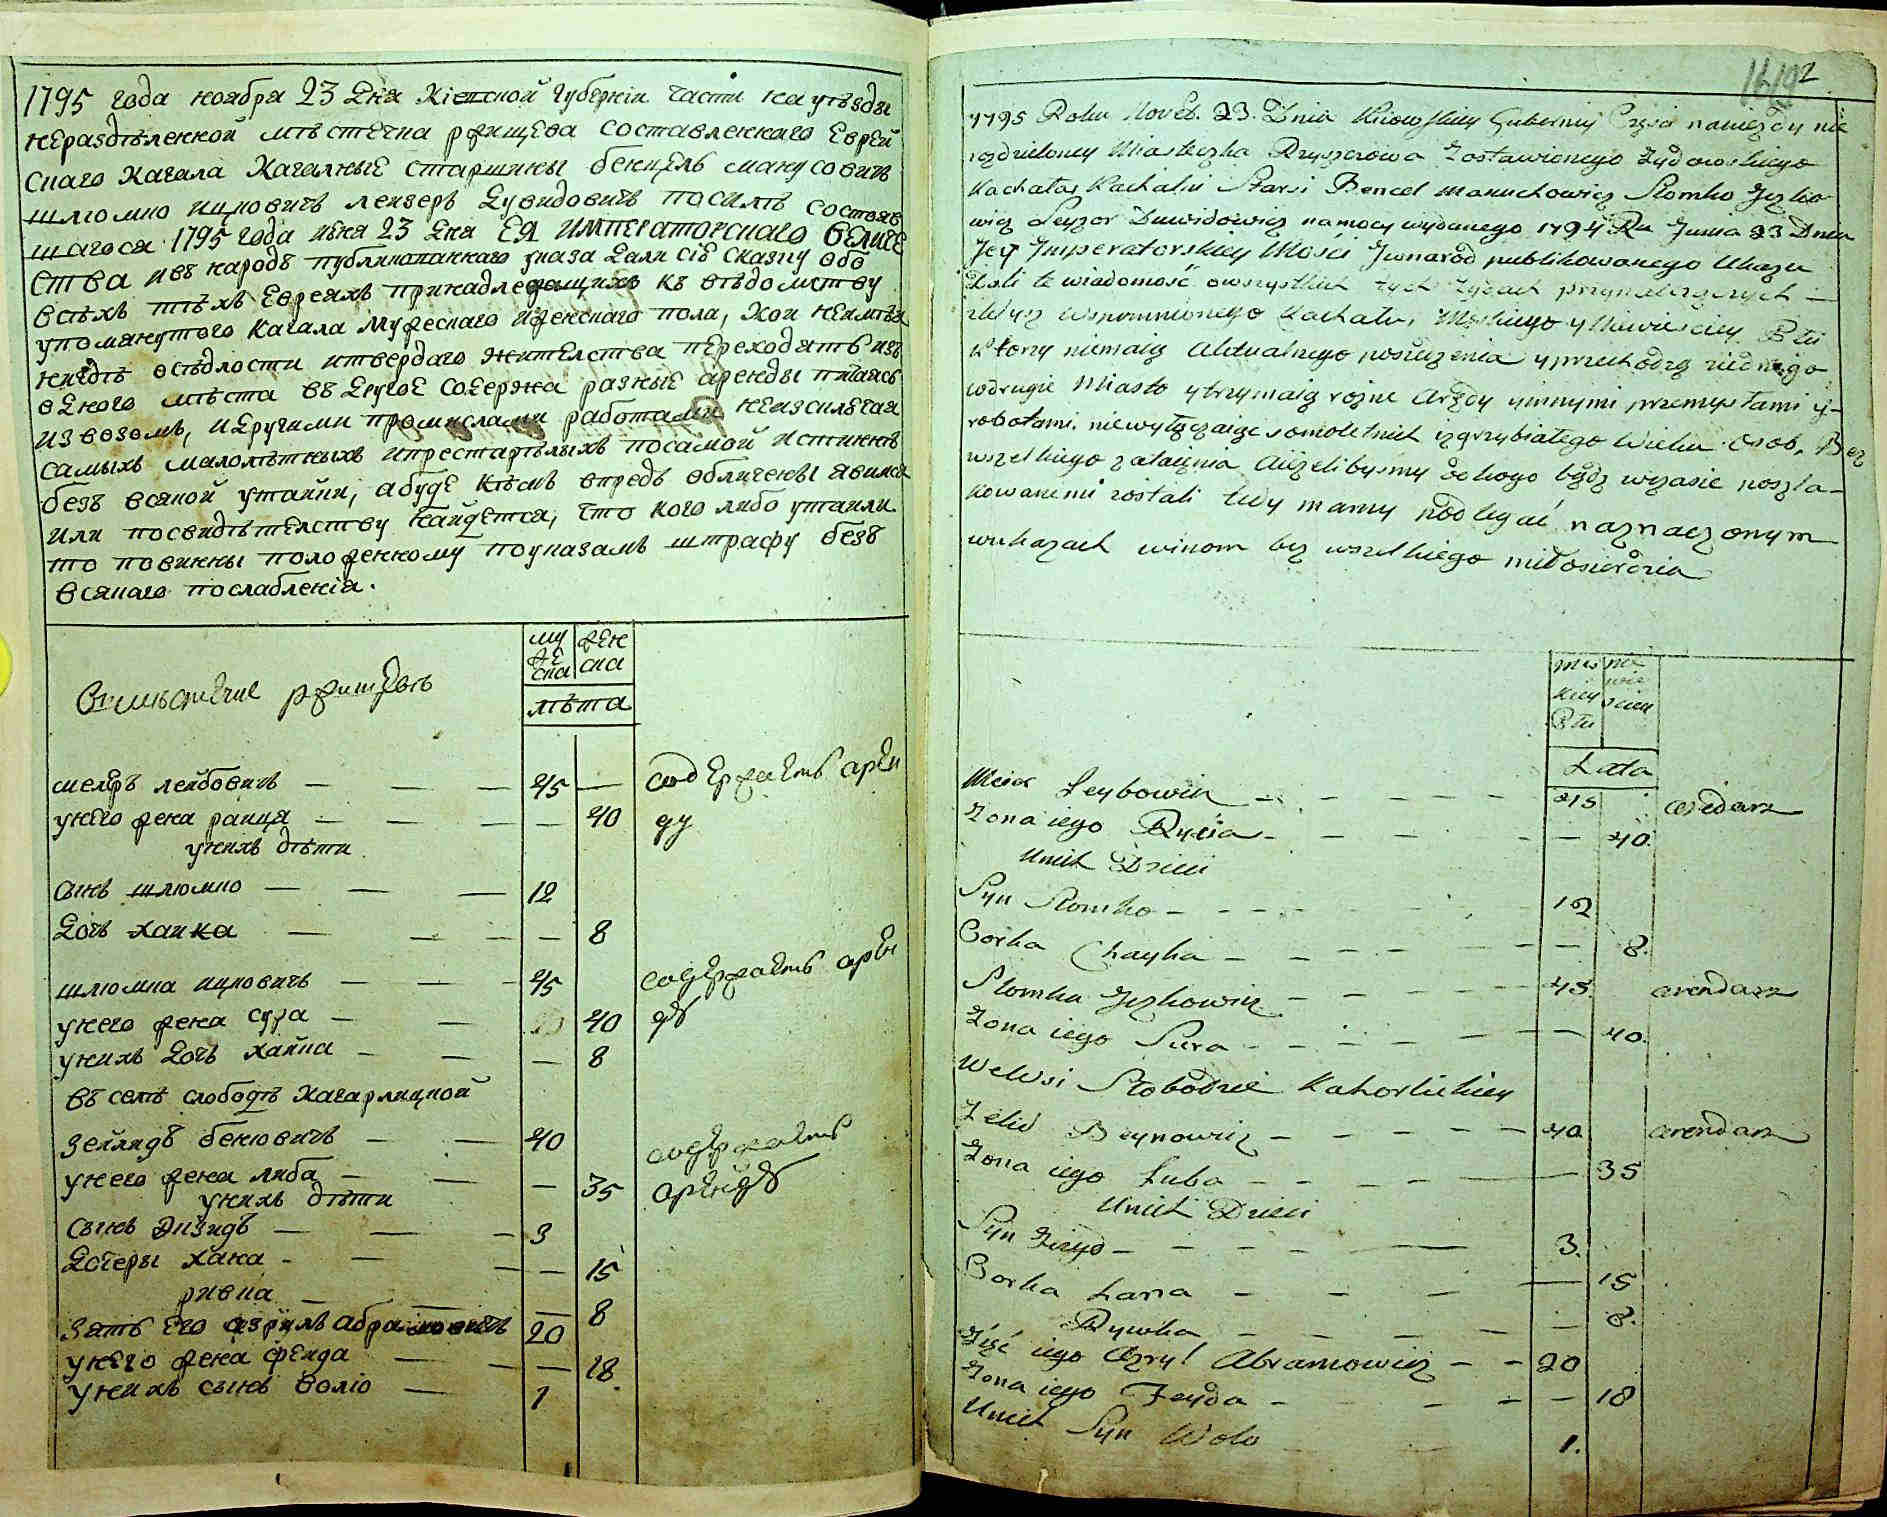 1795 года ноября 23 дня Кіевской губерніи части на уѣзды
нераздѣленной мѣстечка ржищева составленнаго Еврей
скаго Кагала Кагалные старшины бенцель манусовичъ
шлюмко ицковичъ лейзеръ Дувидовичъ посилѣ состояв
шагося 1795 года 23 дня ЕЯ ИМПЕРАТОРСКАГО ВЕЛИЧЕ
ства и въ народъ публикованнаго указа дали сію сказку обо
всѣхъ тѣхъ Евреяхъ принадлежащихъ къ вѣдомству
упомянутого Кагала мужескаго и женскаго пола, кои неимѣя
нигдѣ осѣдлости и твердаго жителства переходятъ изъ
одного мѣста въ другое содержа разные аренды питаясь
извозомъ, и другими промислами работами неизключая
самыхъ малолѣтныхъ и престарѣлыхъ посамой истиннѣ
безъ всякой утайки, а буде кѣмъ впредь обличены явимся
или посвидѣтелству найдется, что кого либо утаили
то повинны положенному поуказамъ штрафу безъ
всякаго послабленія.
му
же
ска
жен
ска
лѣта
Вмѣстечке ржищевѣ
меиръ лейбовичъ — — — 45 — содержаетъ арен
унего жена раица — — — — 40 ду
унихъ дѣти
сынъ шлюмко — — — 12
дочь хаика — — — — 8
шлюмка ицковичъ — — — 45 содержаетъ арен
унего жена сура — — 40 дѣ
унихъ дочь хайка — — — 8
въ селѣ слободѣ Кагарлицкой
зейлидъ бенювичъ — — 40 содержаетъ
унего жена либа — — — 35 арендѣ
унихъ дѣти
сынъ — — — 3
дочеры хана — — — — 15
ривка — — — 8
зять его азрилъ абрамовичъ 20
унего жена фейда — — — 18.
унихъ сынъ волю — 1
1795 Roku Noveb. 23. Dnia Kiiowskiey Gubernij Części naujezdy nie
rozdzieloney Miasteczka Rzyszczowa Zostawionego Żydowskiego
Kachału Kachalni Starsi Bencel Manuchowicz Słomko Jczko
wicz Leyzor Duwidowicz na mocy wydanego 1794 Ru Junia 23 Dnia
Jey Jmperatorskiey Mosci Jwnarod publikowanego Ukazu
Dali te wiadomość owszystkich tych Żydach przynależących —
Wspomnionego Kachału, Męskiego y Niewieściey Płci
którzy niemaią Aktualnego posiedzenia y przechodzą ziednego
wdrugie Miasto y trzymaią rożne Arędy yinnymi przemysłami y
robotami. niewyłączaiąc somoletnich izgrzybiałego Wieku Osob, Bez
wszelkiego zataienia, Aiżelibysmy do kogo bądz wczasie poszla-
kowanemi zostali tedy mamy podlegać naznaczonym
wukazach winom bez wszelkiego miłosierdzia
męs
kiey
Płci
nie
wie
sciey
Lata
Meior Leybowicz — — — — — 45 aredarz
Żona iego Rycia — — — — — — 40.
Unich Dzieci
Syn Słomko — — — — — 12
Corka Chayka — — — — — — 8.
Słomka Jczkowicz — — — — 45. arendarz
Żona iego Sura — — — — — — 40.
Welwsi Słobodzie Kahorlickiey
Zelid Beynowicz — — — — — 40 arendarz
Żona iego Luba — — — — — 35
Unich Dzieci
Syn — — — — — 3.
Corka Hana — — — — — 15
Rywka — — — — — 8.
Zięć iego Azryl Abramowicz — — 20
Żona iego Feyda — — — — 18
Unich Syn Wolo — — 1.